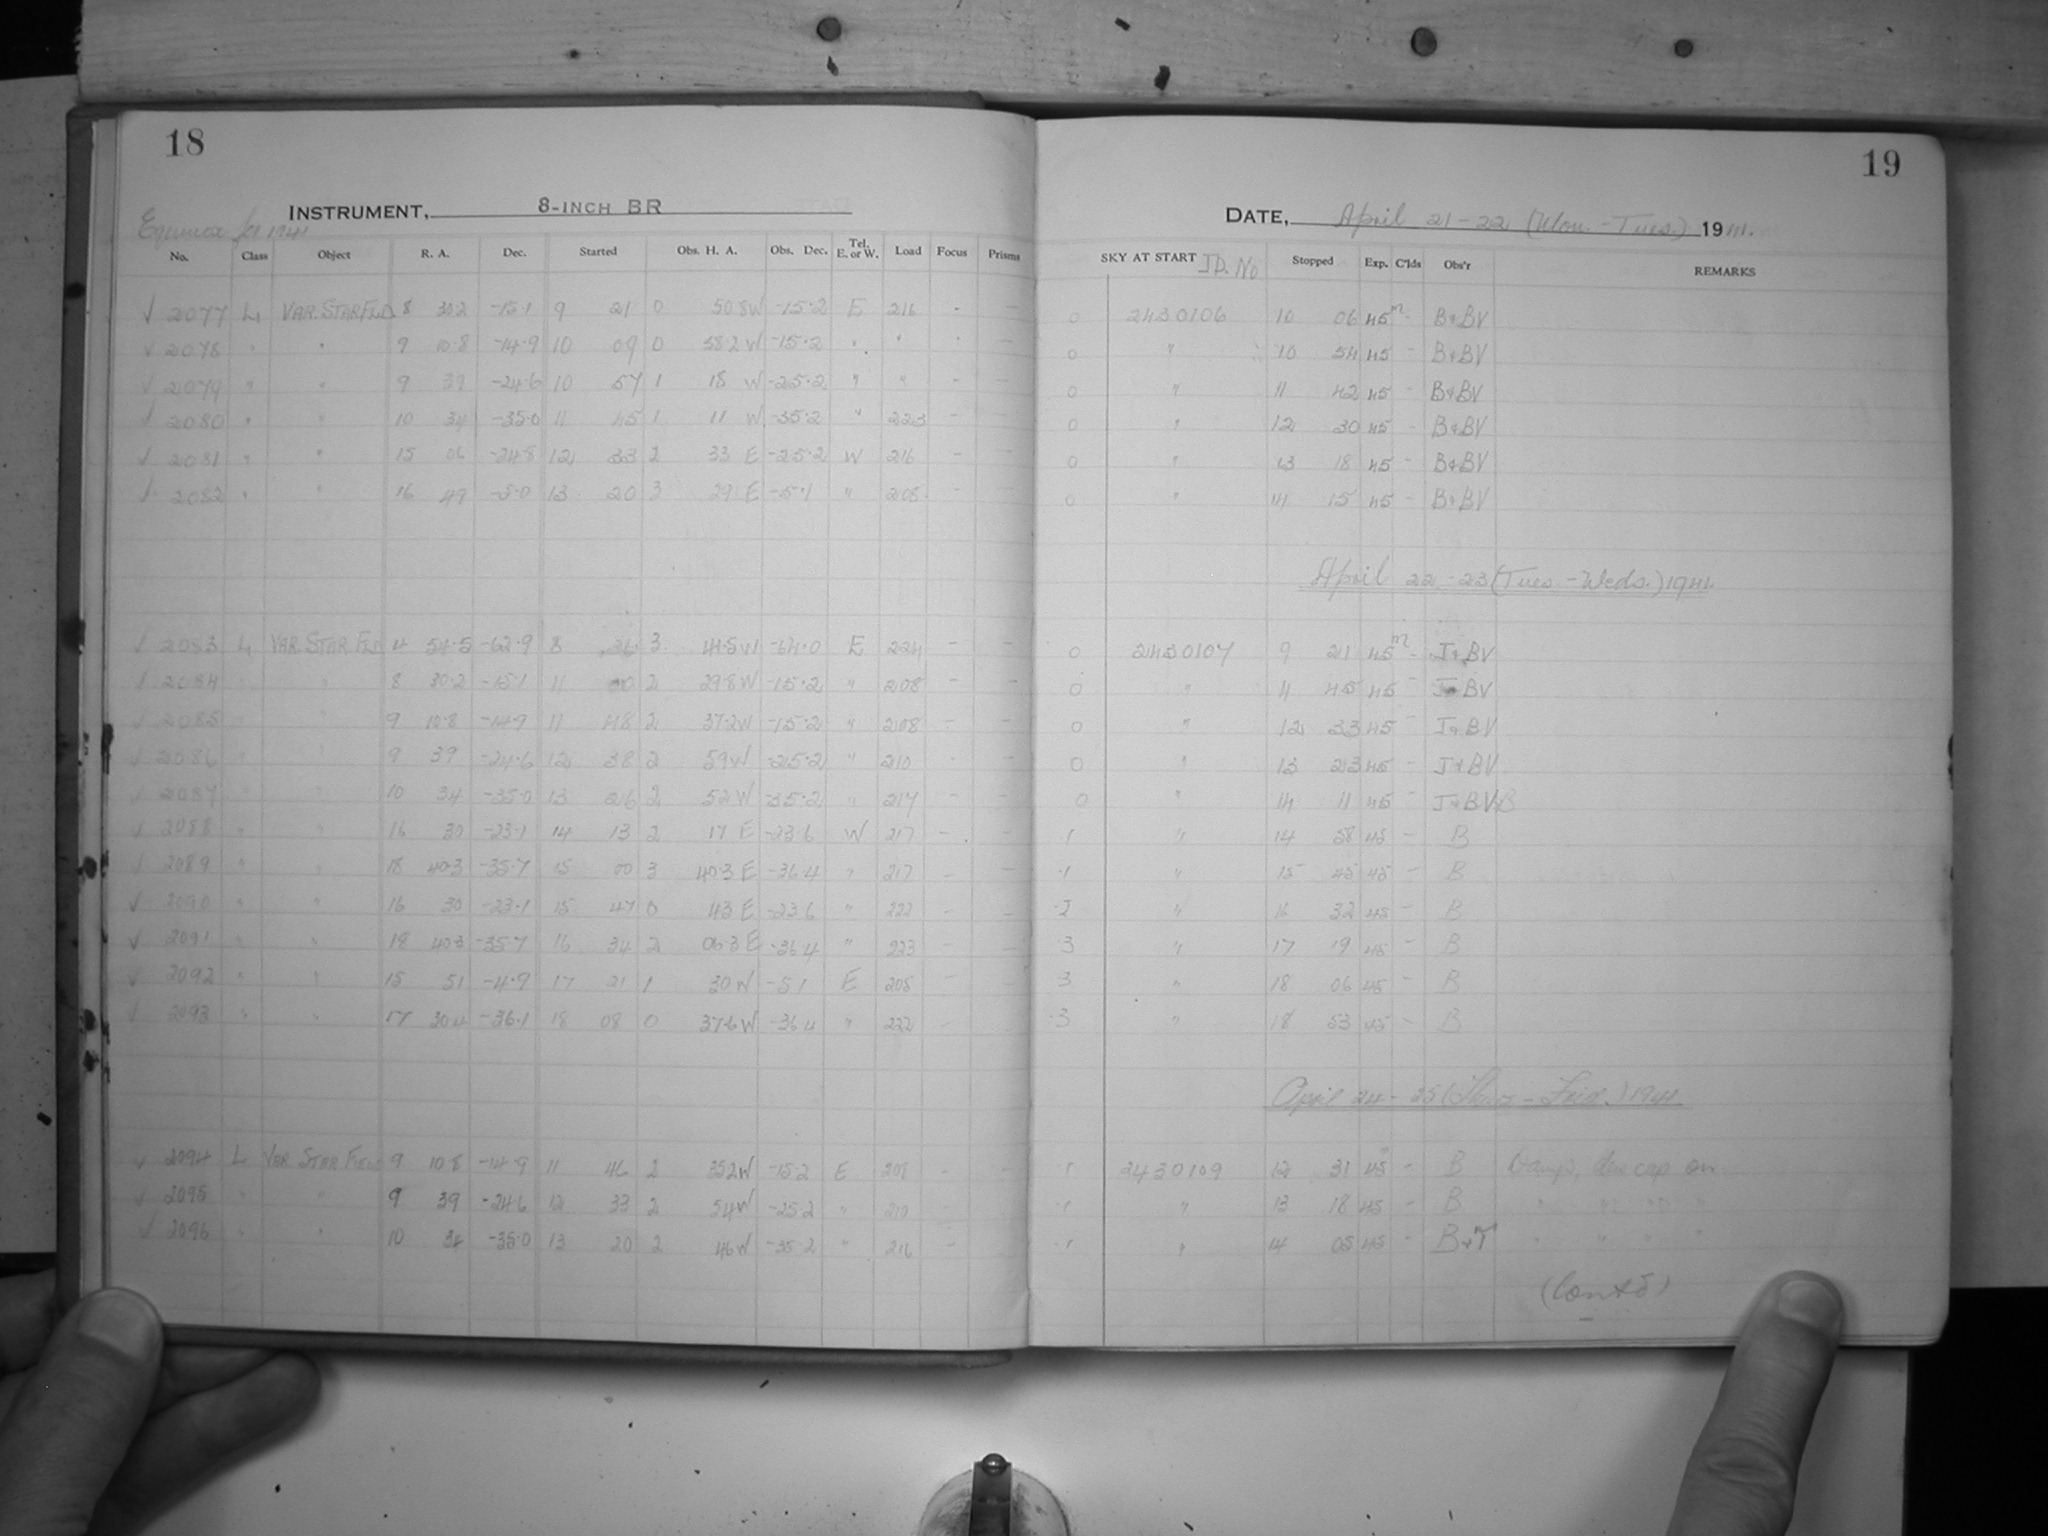 18
INSTRUMENT, 8-INCH BR
Equinox for 1941
No. Class Object R. A. Dec. Started Obs. H. A. Obs. Dec. Tel. E. or W. Load Focus Prisms
√ 2077 L VAR. STAR FLD. 8 30.2 -15.1 9 21 0 50.8W -15.2 E 216 - -
√ 2078 " " 9 10.8 -14.9 10 09 0 58.2 W -15.2 " " - -
√ 2079 " " 9 39 -24.6 10 57 1 18 W -25.2 " " - -
√ 2080 " " 10 34 -35.0 11 45 1 11 W -35.2 " 223 - -
√ 2081 " " 15 06 -24.8 12 33 2 33 E -25.2 W 216 - -
√ 2082 " " 16 49 -5.0 13 20 3 29 E -5.1 " 208 - -
√ 2083 L VAR. STAR FLD 4 54.5 -62.9 8 36 3 41.5W -64.0 E 224 - -
√ 2084 " " 8 30.2 -15.1 11 00 2 29.8W -15.2 " 208 - -
√ 2085 " " 9 10.8 -14.9 11 48 2 37.2W -15.2 " 208 - -
√ 2086 " " 9 39 -24.6 12 38 2 59W -25.2 " 210 - -
√ 2087 " " 10 34 -35.0 13 26 2 52W -35.2 " 217 - -
√ 2088 " " 16 30 -23.1 14 13 2 17 E -23.6 W 217 - -
√ 2089 " " 18 40.3 -35.7 15 00 3 40.3 E -36.4 " 217 - -
√ 2090 " " 16 30 -23.1 15 47 0 43 E -23.6 " 222 - -
√ 2091 " " 18 40.3 -35.7 16 34 2 06.3 E -36.4 " 223 - -
√ 2092 " " 15 51 -4.9 17 21 1 30W -5.1 E 205 - -
√ 2093 " " 17 30.4 -36.1 18 08 0 37.6W -36.4 " 222 - -
√ 2094 L VAR STAR FIELD 9 10.8 -14.9 11 46 2 35.2W -15.2 E 209 - -
√ 2095 " " 9 39 -24.6 12 33 2 54W -25.2 " 210 - -
√ 2096 " " 10 34 -35.0 13 20 2 46W -35.2 " 216 - -
19
DATE, April 21-22 (Mon.-Tues.) 1941.
SKY AT START J.D. No Stopped Exp. C'lds Obs'r REMARKS
0 2430106 10 06 45m - B+BV
0 " 10 54 45 - B+BV
0 " 11 42 45 - B+BV
0 " 12 30 45 - B+BV
0 " 13 18 45 - B+BV
0 " 14 15 45 - B+BV
April 22-23 (Tues.-Weds.) 1941.
0 2430107 9 21 45m - J+BV
0 " 11 45 45 - J+BV
0 " 12 33 45 - J+BV
0 " 13 23 45 - J+BV
0 " 14 11 45 - J+BV
.1 " 14 58 45 - B
.1 " 15 45 45 - B
" 16 32 45 - B
.3 " 17 19 45 - B
.3 " 18 06 45 - B
.3 " 18 53 45 - B
April 24-25 (Thurs-Frid.) 1941
.1 2430109 12 31 45 - B Damp, dew cap on
.1 " 13 18 45 - B " " " "
.1 " 14 05 45 - B+T " " " "
(Cont'd)